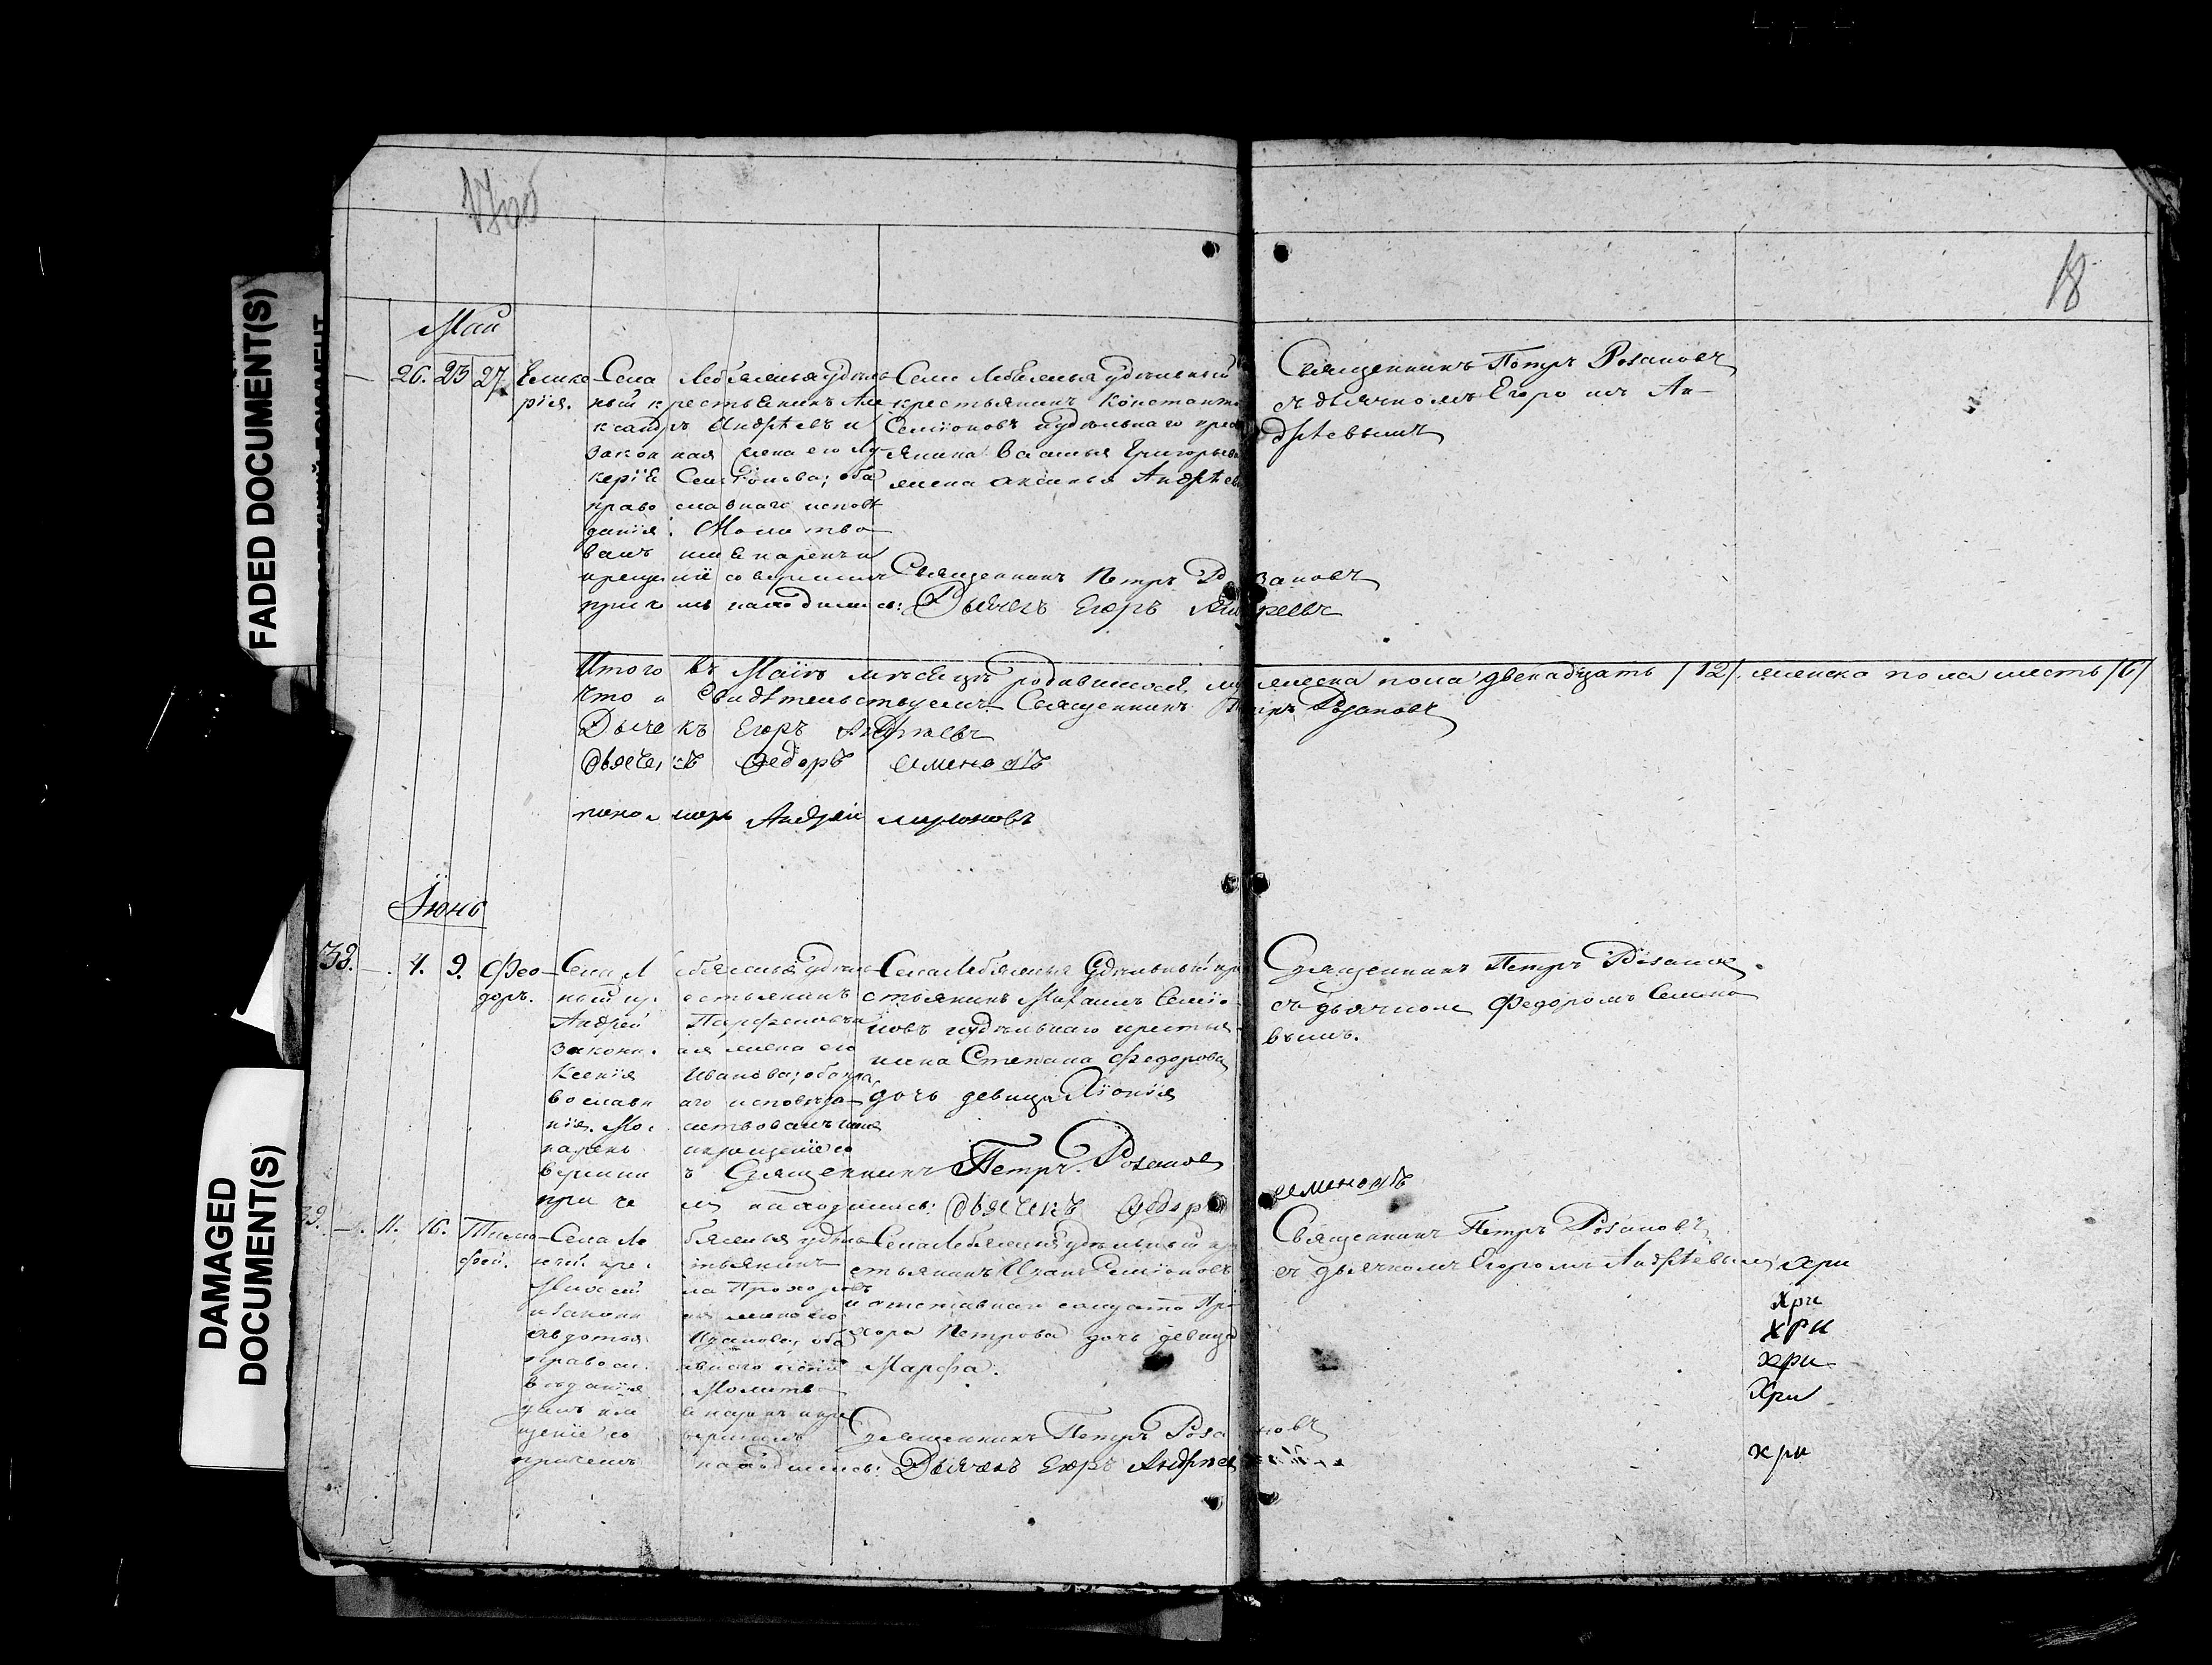 18
Май
26. 23 27. Гликерія.
Села Лебяжья удѣль-
ный крестьянинъ Але-
ксандръ Андрѣевъ и
законная жена его Лу-
керія Семіонова; оба
православнаго исповѣ
данія. Молитво-
валъ имя нарекъ и
крещеніе совершилъ Священникъ Петръ Розановъ
при чемъ находились: Дьячекъ Егоръ Андреевъ
Села Лебяжья удѣльный
крестьянинъ Константи
Семіоновъ и удѣльнаго крес
янина Василья Григорьева
жена Аксинья Андрѣев
Священникъ Петръ Розановъ
съ дьячкомъ Егоромъ Ан-
дрѣевымъ
Итого въ Маіѣ мѣсяцѣ родившихся мужеска пола двенадцать /12/ женска пола шесть /6/
Что и свидѣтельствуемъ Священникъ Петръ Розановъ
Дьячекъ Егоръ Андреевъ
Дьячекъ Федоръ семеновъ
понамарь Андрей мироновъ
Іюнь
38. — 4. 9. Фео-
доръ.
Села Лебяжья удѣль-
ный крестьянинъ
Андрей Парфеновъ и
законная жена его
Ксенія Иванова; оба пра
вославнаго исповѣда-
нія. Молитвовалъ имя
нарекъ и крещеніе со
вершилъ Священникъ Петръ Розановъ
при чемъ находились: Дьячекъ Федоръ семеновъ
Села Лебяжья Удѣльный кре
стьянинъ Михаилъ Семіо-
новъ и удѣльнаго крестья-
нина Степана Федорова
дочь девица
Священникъ Петръ Розановъ
съ дьячкомъ Федоромъ Семено
вымъ.
39. — 11. 16. Тимо-
фей.
Села Лебяжья удѣль-
ный крестьянинъ
Прохоровъ
и законная жена его
Авдотья Иванова; оба
православнаго испо
вѣданія. Молитво-
валъ имя нарекъ и кре
щеніе совершилъ Священникъ Петръ Розановъ
при чемъ находились: Дьячекъ Егоръ Андреевъ
Села Лебяжья удѣльный кре
стьянинъ Иванъ Семіоновъ
и отставнаго солдата Про-
хора Петрова дочь девица
Марфа.
Священникъ Петръ Розановъ
съ дьячкомъ Егоромъ Андрѣевымъ
хри
Хри
хри
хри
Хри
хри
FADED DOCUMENT(S)
DAMAGED
DOCUMENT(S)